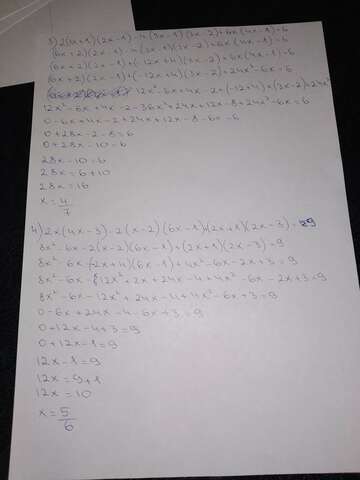 3) 2(6x+1)(2x-1)-4(3x-1)(3x-2)+6x(4x-1)=6
(6x+2)(2x-1)-4(3x-1)(3x-2)+6x(4x-1)=6
(6x+2)(2x-1)+(-12x+4)(3x-2)+6x(4x-1)=6
(6x+2)(2x-1)+(-12x+4)(3x-2)+24x²-6x=6
12x²-6x+4x-2+(-12x+4)×(3x-2)+24x²
12x²-6x+4x-2-36x²+24x+12x-8+24x²-6x=6
0-6x+4x-2+24x+12x-8-6x=6
0+28x-2-8=6
0+28x-10=6
28x-10=6
28x=6+10
28x=16
x=4/7
4) 2x(4x-3)-2(x-2)(6x-1)+(2x+1)(2x-3)=9
8x²-6x-2(x-2)(6x-1)+(2x+1)(2x-3)=9
8x²-6x-(2x+4)(6x-1)+4x²-6x-2x+3=9
8x²-6x-12x²+2x+24x-4+4x²-6x-2x+3=9
8x²-6x-12x²+24x-4+4x²-6x+3=9
0-6x+24x-4-6x+3=9
0+12x-4+3=9
0+12x-1=9
12x-1=9
12x=9+1
12x=10
x=5/6